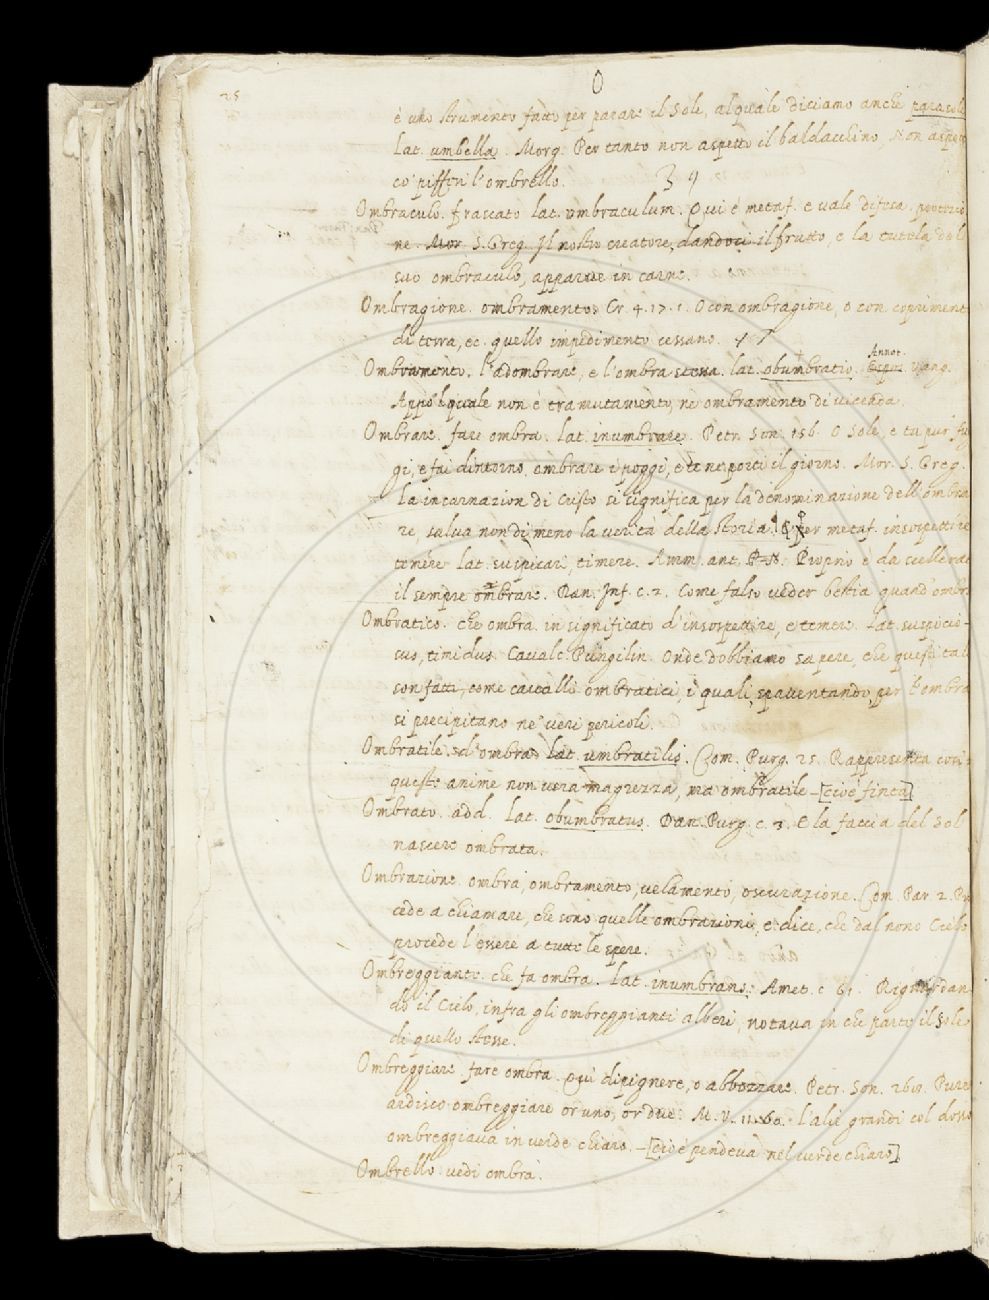 O
25
è uno strumento fatto per parare il Sole, al quale diciamo anche parasole
Lat. umbella. Morg. Per tanto non aspetto il baldacchino, Non aspetto
co' pifferi l'ombrello. 3 4
Ombraculo. frascato lat. umbraculum. Qui è metaf. e vale difesa, protezio
ne. Mor. S. Greg. Il nostro creatore, dandoci il frutto, e la tutela del
suo ombraculo, apparve in carne.
Ombragione. ombramento. Cr. 4. 17. 1. O con ombragione, o con copriment
di terra, ec. quello impedimento cessano.
Annot.
Ombramento. l'adombrare, e l'ombra stessa. lat. obumbratio. Vang.
Appo 'l quale non è tramutamento, nè ombramento di vicenda.
Ombrare. fare ombra. Lat. inumbrare. Petr. Son. 156. O Sole, e tu pur fug
gi, e fai dintorno ombrare i poggi, e te ne porti il giorno. Mor. S. Greg.
La incarnazion di Cristo si significa per la denominazione dell'ombra
re, salva nondimeno la verità della storia. § Per metaf. insospettire
temere lat. suspicari, timere. Amm. ant. Proprio è da scellerat
il sempre ombrare. Dan. Inf. c. 2. Come falso veder bestia quand'ombr
Ombratico. che ombra. in significato d'insospettire, e temere. lat. suspicio-
sus, timidus. Cavalc. Pungilin. Onde dobbiamo sapere, che questi tali
son fatti, come cavalli ombratici, i quali, spaventando, per l'ombra
si precipitano ne' veri pericoli.
Ombratile. d'ombra. lat. umbratilis. Com. Purg. 25. Rappresenta così
queste anime non vera magrezza, ma ombratile - [cioè finta]
Ombrato. add. Lat. obumbratus. Dan. Purg. c. 3. E la faccia del Sol
nascere ombrata.
Ombrazione. ombra, ombramento, velamento, oscurazione. Com. Par. 2. Pro
cede a chiamare, che sono quelle ombrazioni, e dice, che dal nono Cielo
procede l'essere a tutte le spere.
Ombreggiante. che fa ombra. Lat. inumbrans. Amet. c 61. Riguardan
do il Cielo, infra gli ombreggianti alberi, notava in che parte il Sole
di quello stesse.
Ombreggiare. fare ombra. Qui dipignere, o abbozzare. Petr. Son. 261. Pure
ardisco ombreggiare or uno, or due. M. V. 11. 60. L'alie grandi col dosso
ombreggiava in verde chiaro. - [cioè pendeva nel verde chiaro]
Ombrello. vedi ombra.